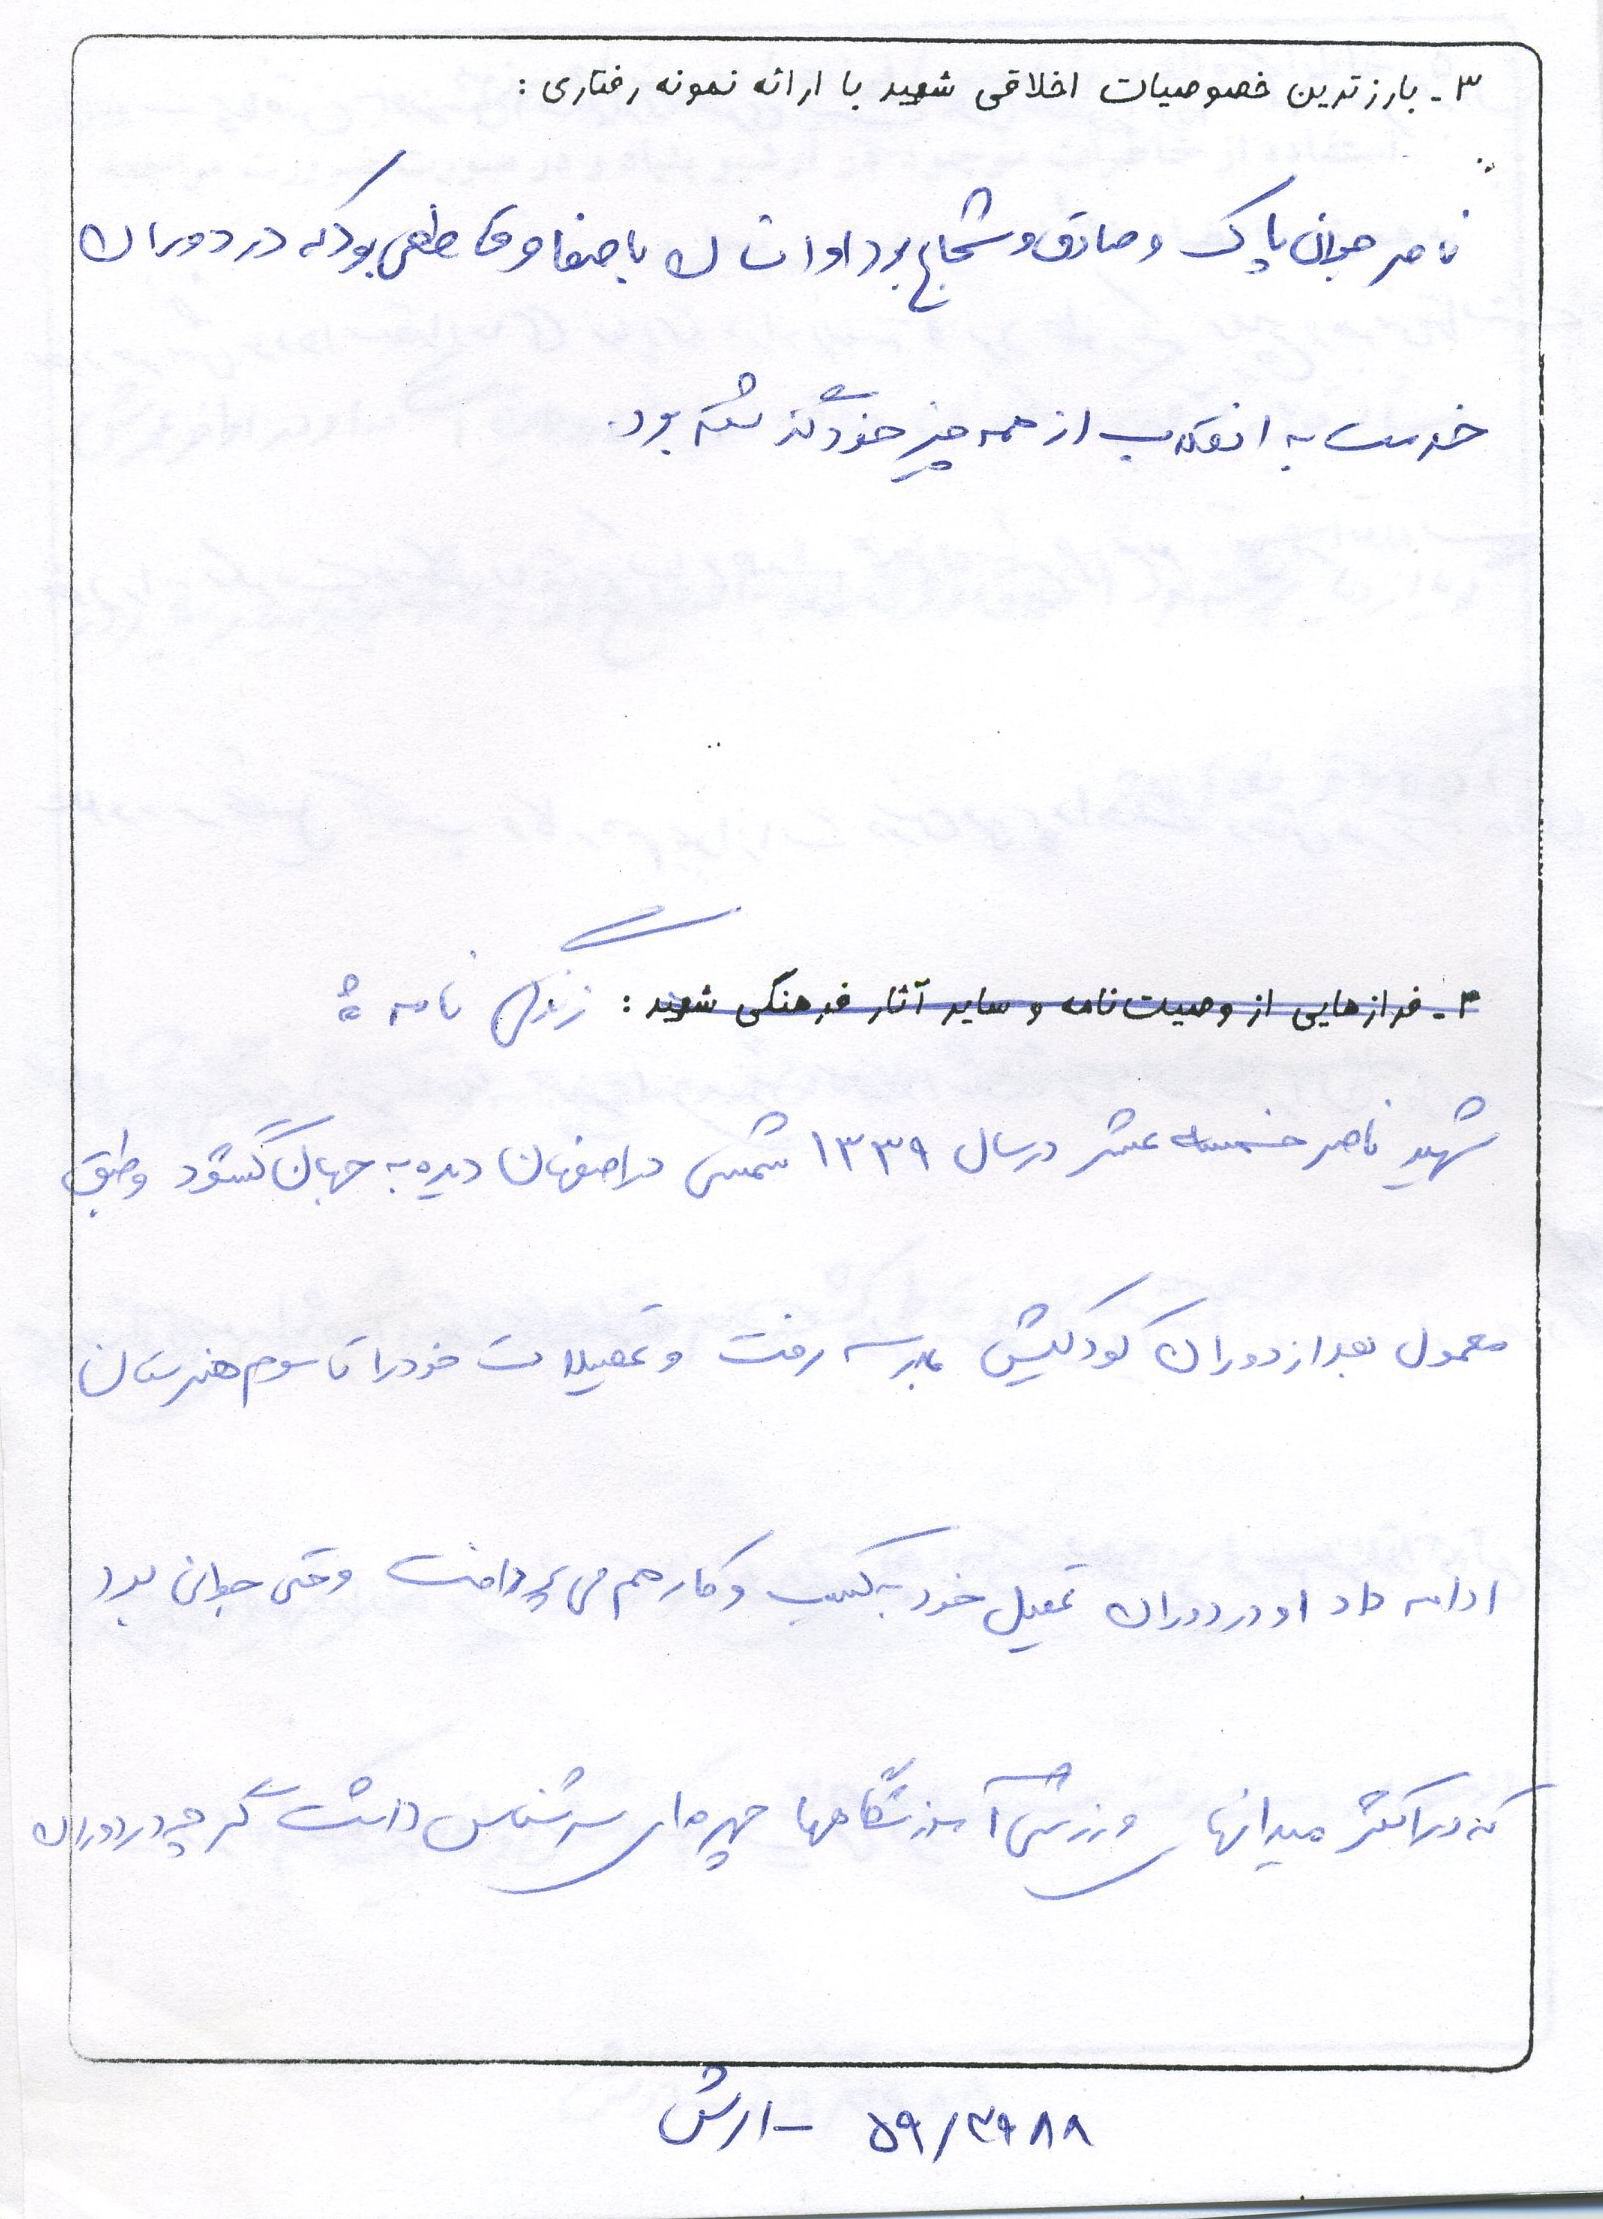 ۳- بارزترین خصوصیات اخلاقی شهید با ارائه نمونه رفتاری :
ناصر جوان پاک و صادق و شجاع بود او انسان باصفا و قاطعی بود که در دوران
خدمت به انقلاب از همه چیز خود گذشته بود.
۴- فرازهایی از وصیت‌نامه و سایر آثار فرهنگی شهید : زندگی نامه :
شهید ناصر خمسه عشر در سال ۱۳۳۹ شمسی در اصفهان دیده به جهان گشود و طبق
معمول بعد از دوران کودکیش بمدرسه رفت و تحصیلات خود را تا سوم هنرستان
ادامه داد او در دوران تحصیل خود به کسب و کار هم می پرداخت وقتی جوان بود
که در اکثر میدانها ورزشی آموزشگاهها چهره‌ای سرشناس داشت گرچه در دوران
۵۹/۳۹۸۸ - ارتش